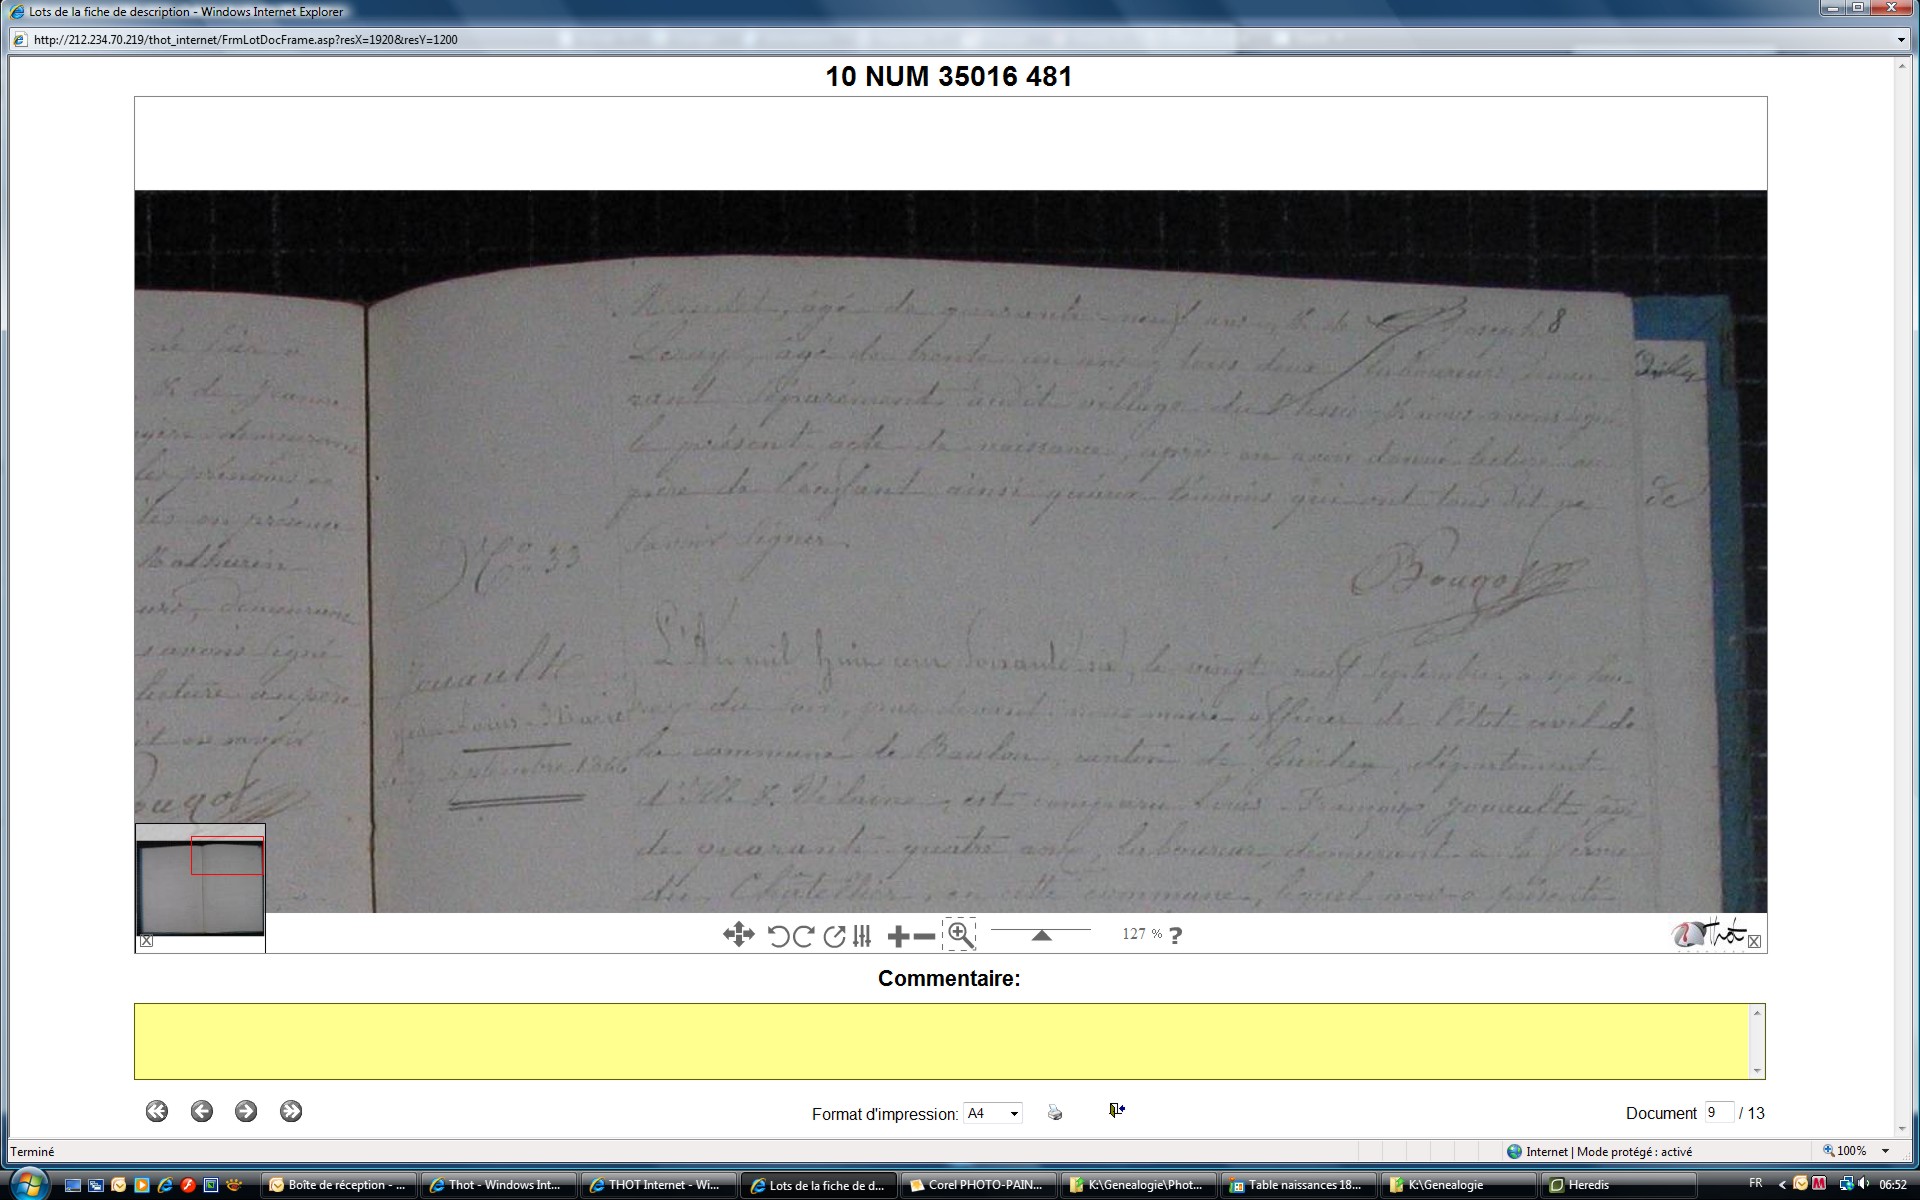 Lots de la fiche de description - Windows Internet Explorer
http://212.234.70.219/thot_internet/FrmLotDocFrame.asp?resX=1920&resY=1200
10 NUM 35016 481
âgé de quarante neuf ans, & de Joseph 8
Leray, âgé de trente un ans, tous deux laboureurs, demeu
rant séparément audit village du Plessis, & nous avons signé
le présent acte de naissance, après en avoir donné lecture au
père de l'enfant ainsi qu'aux témoins qui ont tous dit ne
savoir signer.
Bougot
N° 33
Jouault
Jean Louis Marie
29 septembre 1866
L'An mil huit cent soixante six, le vingt neuf septembre, à
du soir, par devant nous maire, officier de l'état civil de
la commune de Baulon, canton de Guichen, département
d'Ille & Vilaine, est comparu Louis François Jouault, âgé
de quarante quatre ans, laboureur, demeurant à la ferme
des Châtelliers, en cette commune, lequel nous a présenté
& de Jeanne
demeurant
les prénoms de
en présence
Mathurin
demeurant
avons signé
lecture au père
savoir
Bougot
de
127 % ?
Thot
Commentaire:
Format d'impression: A4
Document 9 / 13
Terminé
Internet | Mode protégé : activé
100%
Boîte de réception - ...
Thot - Windows Int...
THOT Internet - Wi...
Lots de la fiche de d...
Corel PHOTO-PAIN...
K:\Genealogie\Phot...
Table naissances 18...
K:\Genealogie
Heredis
FR
06:52